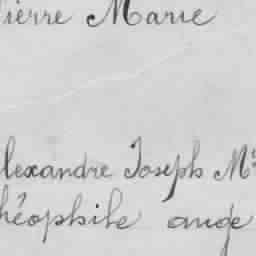 ierre Marie
lexandre Joseph M
héophile ange